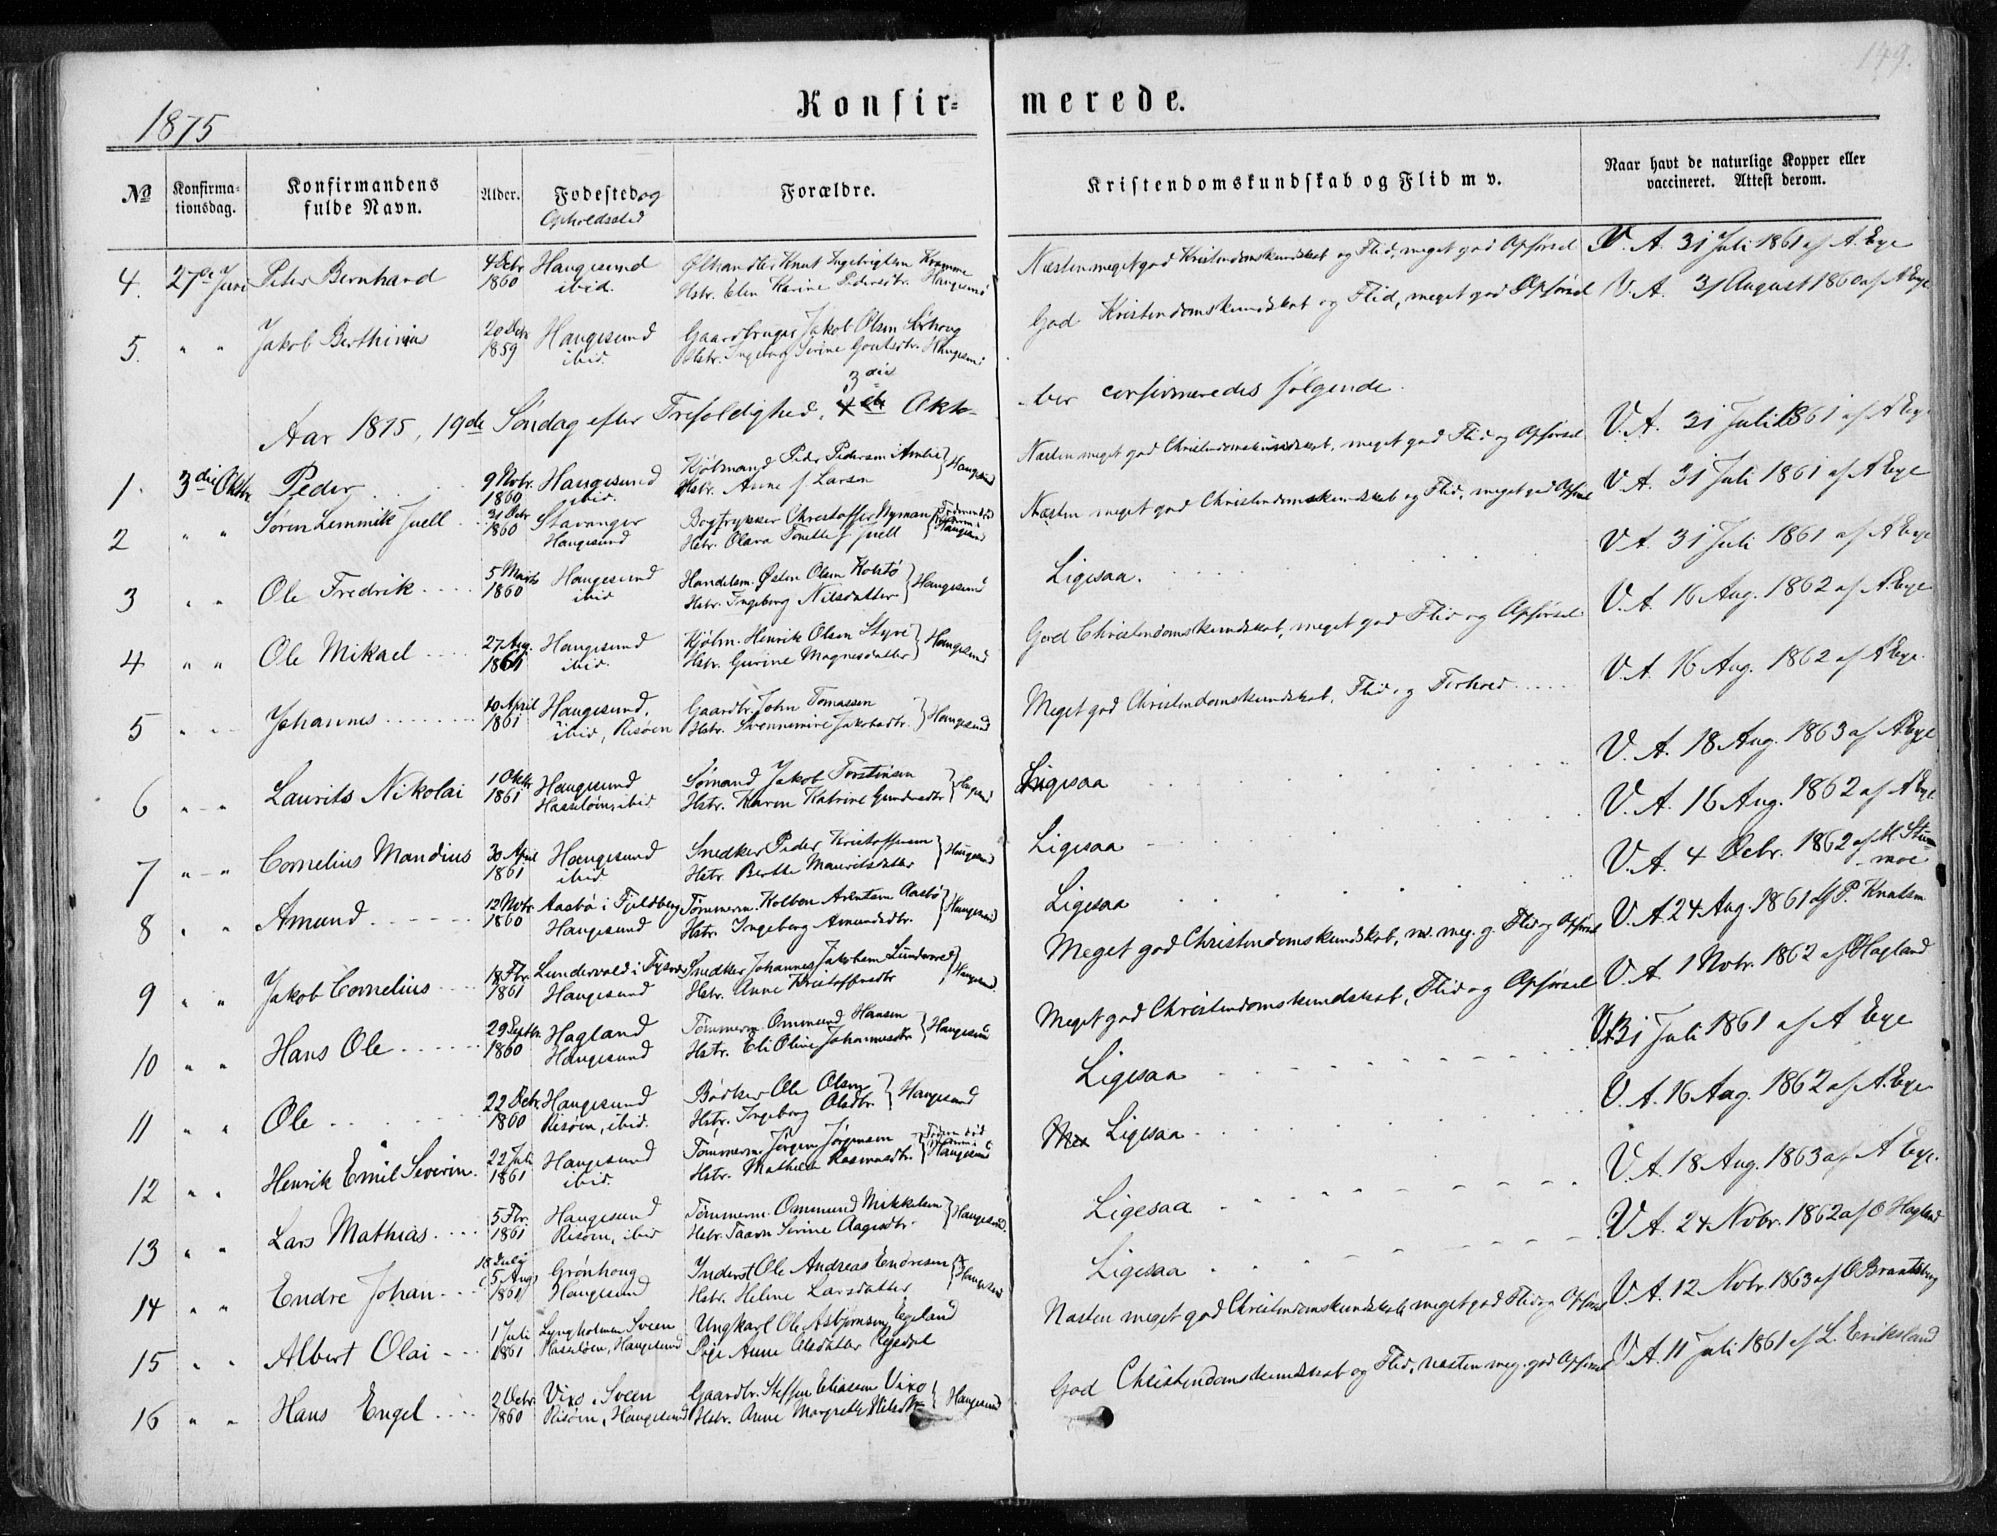 149.
Konfir= merede.
1875
№ Konfirma-tionsdag. Konfirmandens fulde Navn. Alder. Fødested og Opholdssted Forældre. Kristendomskundskab og Flid m v. Naar havt de naturlige Kopper eller vaccineret. Attest derom.
4. 27de Juni Peter Bernhard 4 Debr 1860 Haugesund ibid. Ølhandler Knut Ingebrigtsen Hstr. Elen Karine Pedersdtr. Haugesund Næsten meget god Kristendomskundskab og Flid, meget god Opførsel V. A. 31 Juli 1861 af A. Eye
5. " " Jakob Berthinius 20 Debr 1859 Haugesund ibid. Gaardbruger Jakob Olsen Sørhoug Hstr. Ingeborg Serine Goutesdtr. Haugesund God Kristendomskundskab og Flid, meget god Opførsel V. A. 31 August 1860 af A Eye
Aar 1875, 19de Søndag efter Trefoldighed, 3die Okto-ber confirmeredes følgende.
1. 3die Oktbr Peder 9 Novbr. 1860 Haugesund ibid. Kjøbmand Peder Pedersen Amlie Hstr. Anne f Larsen } Haugesund Næsten meget god Christendomskundskab, meget god Flid og Opførsel V. A. 31 Juli 1861 af A Eye
2 " " Søren Lemmik Juell 31 Debr 1860 Stavanger Haugesund Bogtrykker Christoffer Nyman Hstr. Olava Tonette f Juell } Haugesund Næsten meget god Christendomskundskab og Flid, meget god Opførsel V. A. 31 Juli 1861 af A Eye
3 " " Ole Fredrik 5 Marts 1860 Haugesund ibid Handelsm. Østen Olsen Kolstø Hstr. Ingeborg Nilsdatter } Haugesund Ligesaa. V A. 31 Juli 1861 af A Eye
4 " " Ole Mikael 27 Aug. 1861 Haugesund ibid. Kjøbm. Henrik Olsen Styve Hstr. Gurine Magnesdatter } Haugesund God Christendomskundskab, meget god Flid og Opførsel V. A. 16 Aug. 1862 af A. Eye
5 " " Johannes 10 April 1861 Haugesund, ibid, Risøen Gaardbr. John Tomassen Hstr. Svennemine Jakobsdtr. } Haugesund Meget god Christendomskundskab, Flid og Forhold V. A. 16 Aug. 1862 af A Eye.
6 " " Laurits Nikolai 1 Oktbr 1861 Haugesund Hasseløen, ibid Sømand Jakob Torstensen Hstr. Karen Katrine Gundersdtr } Haugesund Ligesaa V. A. 18 Aug. 1863 af A Eye
7 " " Cornelius Mandius 30 April 1861 Haugesund ibid Snedker Peder Kristoffersen Hstr Berthe Mauritsdatter } Haugesund Ligesaa V. A. 16 Aug. 1862 af A Eye
8 " " Amund 12 Novbr. 1860 Aasbø i Fjeldberg Haugesund Tømmerm. Kolben Arentsen Aasbø Hstr. Ingeborg Amundsdtr. } Haugesund Ligesaa V. A. 4 Debr. 1862 af M. Stumoe
9 " " Jakob Cornelius 18 Fbr. 1861 Lundervold i Tysvær Haugesund Snedker Johannes Jakobsen Lundervold Hstr. Anne Kristoffersdtr } Haugesund Meget god Christendomskundskab, m. meg. g. Flid og Opførsel V. A. 24 Aug. 1861 af P. Knutsen
10 " " Hans Ole 29 Septbr. 1860 Hagland Haugesund Tømmerm. Ommund Hansen Hstr. Eli Oline Johannesdtr } Haugesund Meget god Christendomskundskab, Flid og Opførsel V. A. 1 Novbr. 1862 af O Hagland
11 " " Ole 22 Debr. 1860 Haugesund Risøen, ibid. Bødker Ole Olsen Hstr. Ingeborg Olsdtr. } Haugesund Ligesaa V. A. 31 Juli 1861 af A Eye
12 " " Henrik Emil Severin 22 Juli 1861 Haugesund ibid. Tømmerm. Jørgen Jørgensen Hstr. Mathea Rasmusdtr. } Haugesund Ligesaa V. A. 16 Aug. 1862 af A. Eye
13 " " Lars Mathias 5 Fbr. 1861 Haugesund Risøen, ibid Tømmerm. Ommund Mikkelsen Hstr. Taarn Serine Aagesdtr. } Haugesund Ligesaa V. A. 18 Aug. 1863 af A Eye.
14 " " Endre Johan 5 Aug 1861 Grønhoug Haugesund Inderst Ole Andreas Endresen Hstr. Heline Larsdatter } Haugesund Ligesaa V. A. 24 Novbr. 1862 af O Hagland
15 " " Albert Olai 1 Juli 1861 Lyngholmen Sveen Hasseløen, Haugesund Ungkarl Ole Asbjørnsen Egeland Pige Anne Olsdatter Næsten meget god Christendomskundskab, meget god Flid og Opførsel V. A. 12 Novbr. 1863 af O Braatsberg
16 " " Hans Engel 2 Debr 1860 Vixo, Sveen Risøen, Haugesund Gaardbr. Steffen Eliasen Vixo Hstr. Anne Margrethe Nilsdtr } Haugesund God Christendomskundskab og Flid, næsten meg. god Opførsel V. A. 11 Juli 1861 af L. Eriksland